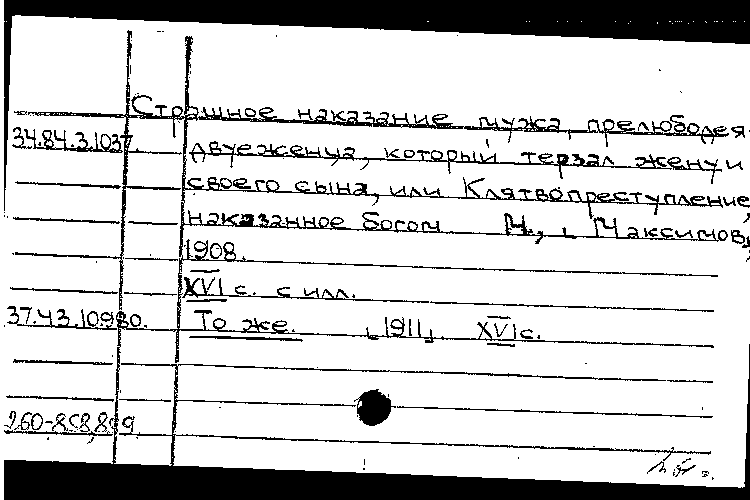 Страшное наказание мужа, прелюбодея-
34.84.3.1037. двуеженца, который терзал жену и
своего сына, или Клятвопреступление,
наказанное Богом М., Максимов,
1908.
XVI с. с илл.
37.43.10980. То же. [1911] XVI с.
260-858,899